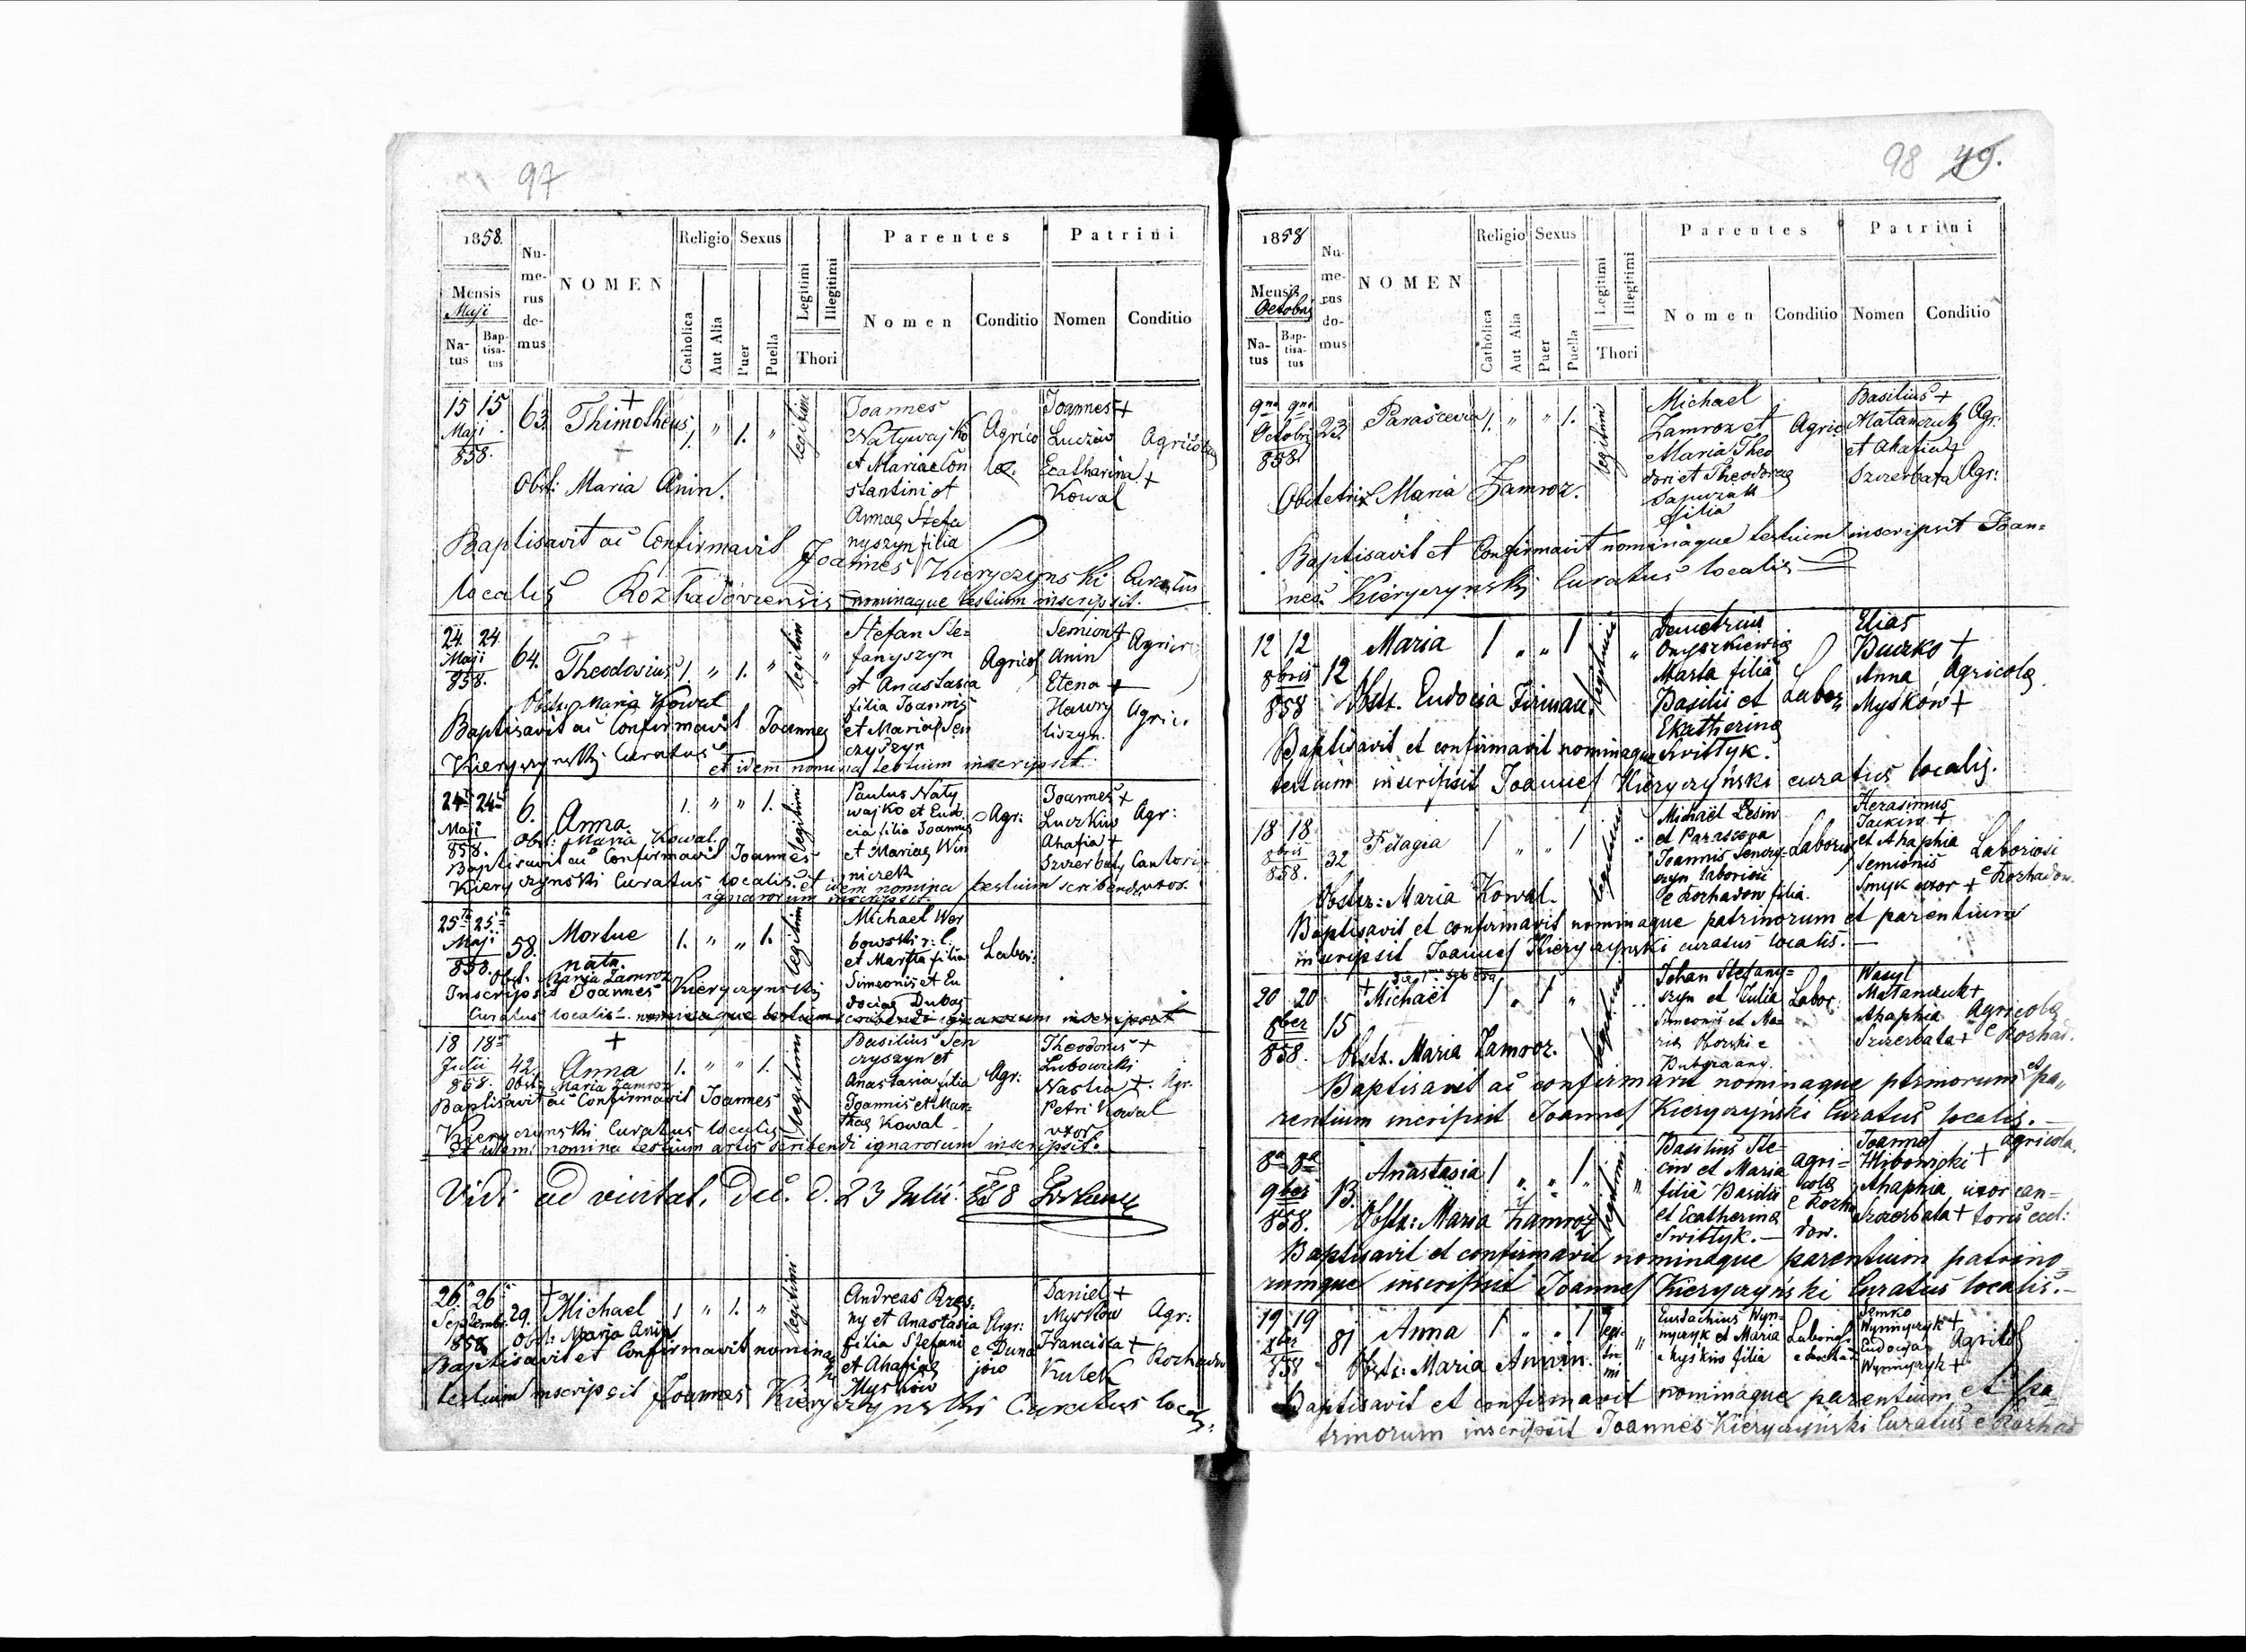 97
1858.
Mensis
Maji
Natus
Baptisatus
Numerus domus
NOMEN
Religio
Catholica
Aut Alia
Sexus
Puer
Puella
Legitimi
Illegitimi
Thori
Parentes
Nomen
Conditio
Patrini
Nomen
Conditio
15 15 Maji 858. 63. Thimotheus 1. " 1. " legitimi
Joannes
Natywajko
et Maria Con
stantini et
Annae Stefa
nyszyn filia
Agrico
lae.
Joannes +
Luczkiw
Ecatharina +
Kowal
Agricolae
Obst: Maria Anin.
Baptisavit ac Confirmavit Joannes Kieryczynski Curatus
localis Rozhadoviensis nominaque testium inscripsit.
24 24 Maji 858. 64. Theodosius 1. " 1. " legitimi "
Stefan Ste=
fanyszyn
et Anastasia
filia Joannis
et Mariae Sen
czyszyn
Agricol
Semion +
Anin
Elena +
Hawry
liszyn.
Agric.
Obst. Maria Kowal
Baptisavit ac Confirmavit Joannes
Kieryczynski Curatus
et idem nomina testium inscripsit.
24 24 Maji 858. 6. Anna. 1. " " 1. legitimi
Paulus Naty
wajko et Eudo
cia filia Joannis
et Mariae Win
niczek
Agr:
Joannes +
Luczkiw
Ahafia +
Szczerbaty Cantoris
uxor.
Agr:
Obst: Maria Kowal.
Baptisavit ac Confirmavit Joannes
Kieryczynski Curatus localis et idem nomina testium scribendi
ignarorum inscripsit.
25 25 Maji 858. 58. Mortue nata. 1. " " 1. legitimi
Michael Wer
bowski r: l:
et Martha filia
Simeonis et Eu
dociae Dubas
Labor:
Obst. Maria Zamroz
Inscripsit Joannes Kieryczynski
Curatus localis nominaque testium scribendi ignarorum inscripsit
18 18 Julii 858. 42. + Anna 1. " " 1. legitimi
Basilius Sen
czyszyn et
Anastasia filia
Joannis et Mar=
thae Kowal
Agr:
Theodorus +
Lubowicki
Nastia +
Petri Kowal
uxor
Agr.
Obst: Maria Zamroz
Baptisavit ac Confirmavit Joannes
Kieryczynski Curatus localis
et idem nomina testium artis scribendi ignarorum inscripsit.
Vidi ad visitat. Dec. d. 23 Julii 858
26 26 Septembr. 858 29. + Michael 1 " 1. " legitimi
Andreas Bres=
ny et Anastasia
filia Stefani
et Ahafiae
Myskow
Agr:
e Duna
jow
Daniel +
Myskow
Franciska +
Kulek
Agr:
Rochadow
Obst: Maria Anin
Baptisavit et Confirmavit nominaque
testium inscripsit Joannes Kieryczynski Curatus local:
98 49.
1858
Mensis
Octobris
Natus
Baptisatus
Numerus domus
NOMEN
Religio
Catholica
Aut Alia
Sexus
Puer
Puella
Legitimi
Illegitimi
Thori
Parentes
Nomen
Conditio
Patrini
Nomen
Conditio
9na 9na Octobris 858. 23. Parascevia 1. " " 1. legitimi
Michael
Zamroz et
Maria Theo
dori et Theodorae
Sapuzak
filia
Agric
Basilius +
Matanczuk
et Ahafia +
Szczerbata
Agr:
Agr:
Obstetrix Maria Zamroz.
Baptisavit et Confirmavit nominaque testium inscripsit Joan=
nes Kieryczynski Curatus localis
12 12 8bris 858 12 Maria 1 " " 1 legitimi "
Demetrius
Onyszkiewicz
Marta filia
Basilii et
Ekatherina
Swittyk.
Labor
Elias
Buczko +
Anna
Myskow +
Agricolae
Obst. Eudocia Firman.
Baptisavit et confirmavit nominaque
testium inscripsit Joannes Kieryczyński curatus localis.
18 18 8bris 858. 32 Pelagia 1 " " 1 legitimi
Michael Lesiw
et Parasceva
Joannis Senczy=
szyn laboriosi
e Rozhadow filia.
Laborios
Herasimus
Jackiw +
et Ahaphia
Semionis
Smyk uxor +
Laboriosi
e Rozhadow.
Obstr: Maria Kowal.
Baptisavit et confirmavit nominaque patrinorum et parentium
inscripsit Joannes Kieryczynski curatus localis.
20 20 8ber 858. 15 + Michaël 1 " 1 " legitimi
Jehan Stefany=
szyn et Julia
Simeonis et Ma=
ria Horski e
Labor:
Wasyl
Matanczuk +
Ahaphia
Szczerbata +
Agricolae
e Rozhad.
Obstr. Maria Zamroz.
Baptisavit ac confirmavit nominaque ptrinorum et pa=
rentium incripsit Joannes Kieryczyński Curatus localis.
8a 8a 9ber 858. 13. Anastasia 1 " " 1 legitimi "
Basilius Ste=
ciw et Maria
filia Basilii
et Ecatherina
Swittyk.
agri=
cola
e Rozha
dow.
Joannes
Hlibowicki +
Ahaphia uxor can=
Szczerbata + toris eccl:
agricola.
Obstr: Maria Zamroz
Baptisavit et confirmavit nominaque parentium patrino=
rumque inscripsit Joannes Kieryczyński Curatus localis.
19 19 858 81 Anna 1 " " 1 legi- ti- mi "
Eustachius Wyn=
nyczyk et Maria
Myskiw filia
Laboriosi
Semko
Wynnyczyk +
Eudocya
Wynnyczyk +
Agricol
Obst: Maria Annin.
Baptisavit et confirmavit nominaque parentium et pa=
trinorum inscripsit Joannes Kieryczyński Curatus e Rozhad